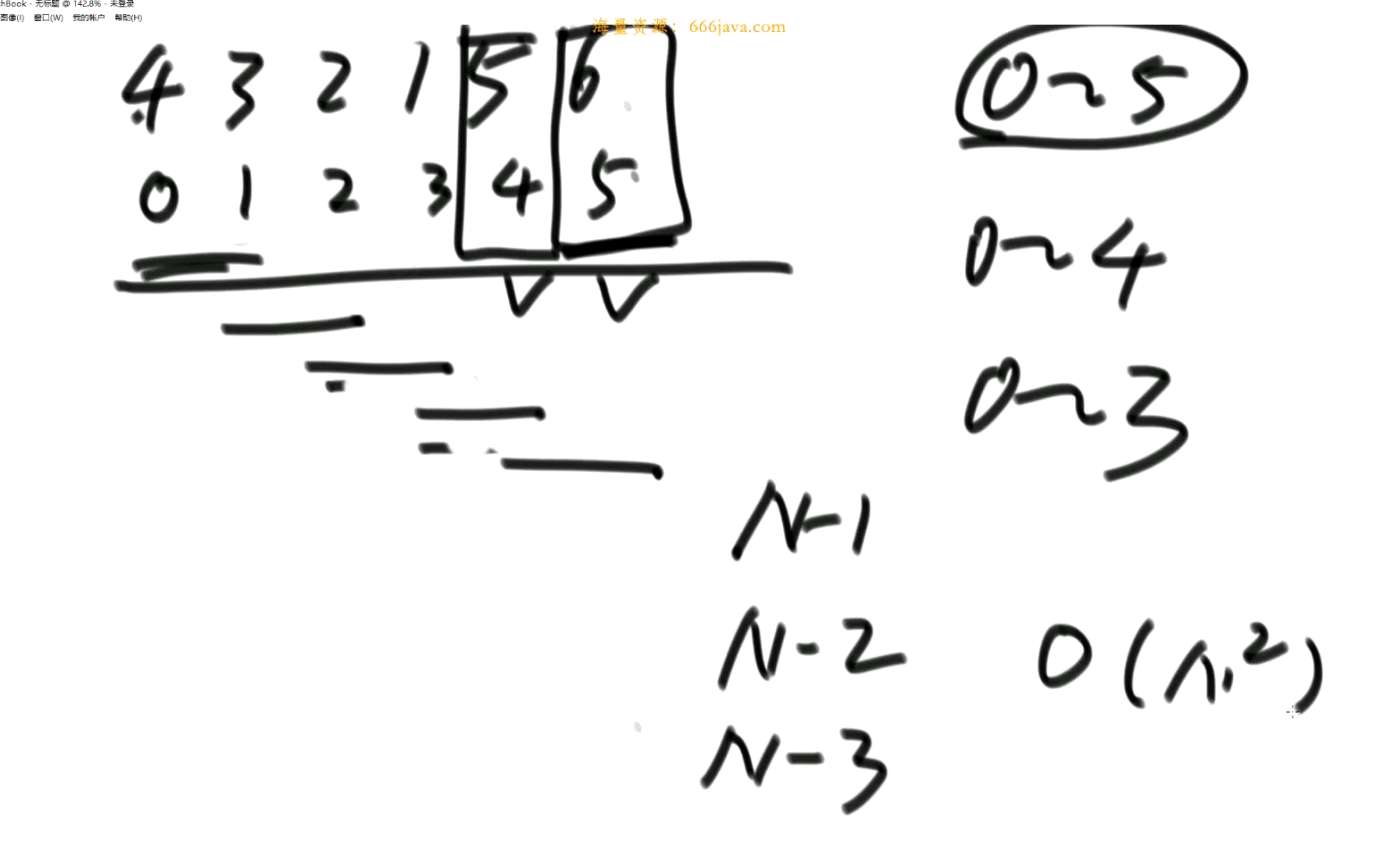 hBook - 无标题 @ 142.8% - 未登录
图像(I) 窗口(W) 我的帐户 帮助(H)
海量资源：666java.com
4 3 2 1 5 6
0 1 2 3 4 5
0~5
0~4
0~3
N-1
N-2
N-3
O(N²)